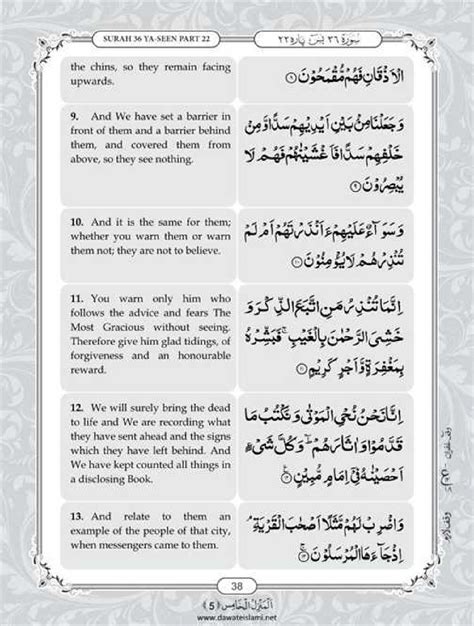 SURAH 36 YA-SEEN PART 22
سورة ٣٦ يٰسٓ پاره ٢٢
the chins, so they remain facing
upwards.
الْاَذْقَانِ فَهُمْ مُّقْمَحُوْنَ ۝۸
9. And We have set a barrier in
front of them and a barrier behind
them, and covered them from
above, so they see nothing.
وَجَعَلْنَا مِنْۢ بَيْنِ اَيْدِيْهِمْ سَدًّا وَّمِنْ
خَلْفِهِمْ سَدًّا فَاَغْشَيْنٰهُمْ فَهُمْ لَا
يُبْصِرُوْنَ ۝۹
10. And it is the same for them;
whether you warn them or warn
them not; they are not to believe.
وَسَوَآءٌ عَلَيْهِمْ ءَاَنْذَرْتَهُمْ اَمْ لَمْ
تُنْذِرْهُمْ لَا يُؤْمِنُوْنَ ۝۱۰
11. You warn only him who
follows the advice and fears The
Most Gracious without seeing.
Therefore give him glad tidings, of
forgiveness and an honourable
reward.
اِنَّمَا تُنْذِرُ مَنِ اتَّبَعَ الذِّكْرَ وَ
خَشِيَ الرَّحْمٰنَ بِالْغَيْبِ ۚ فَبَشِّرْهُ
بِمَغْفِرَةٍ وَّاَجْرٍ كَرِيْمٍ ۝۱۱
12. We will surely bring the dead
to life and We are recording what
they have sent ahead and the signs
which they have left behind. And
We have kept counted all things in
a disclosing Book.
اِنَّا نَحْنُ نُحْيِ الْمَوْتٰى وَنَكْتُبُ مَا
قَدَّمُوْا وَاٰثَارَهُمْ ۚ وَكُلَّ شَيْءٍ
اَحْصَيْنٰهُ فِيْٓ اِمَامٍ مُّبِيْنٍ ۝۱۲
13. And relate to them an
example of the people of that city,
when messengers came to them.
وَاضْرِبْ لَهُمْ مَّثَلًا اَصْحٰبَ الْقَرْيَةِ ۘ
اِذْ جَآءَهَا الْمُرْسَلُوْنَ ۝۱۳
38
اَلْمَنْزِلُ الْخَامِس ﴿5﴾
www.dawateislami.net